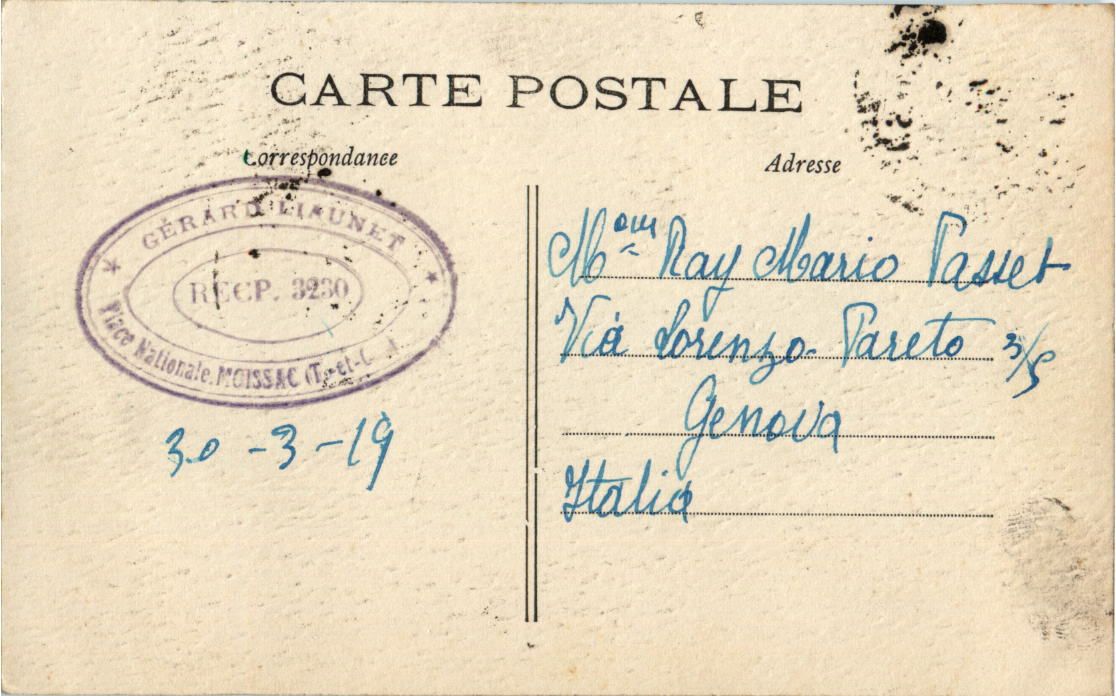 CARTE POSTALE
Correspondance
Adresse
GÉRARD LIAUNET
RECP. 3230
Place Nationale. MOISSAC (T.-et-G.)
30-3-19
Ray Mario Passet
Via Lorenzo Pareto 3/5
Genova
Italia